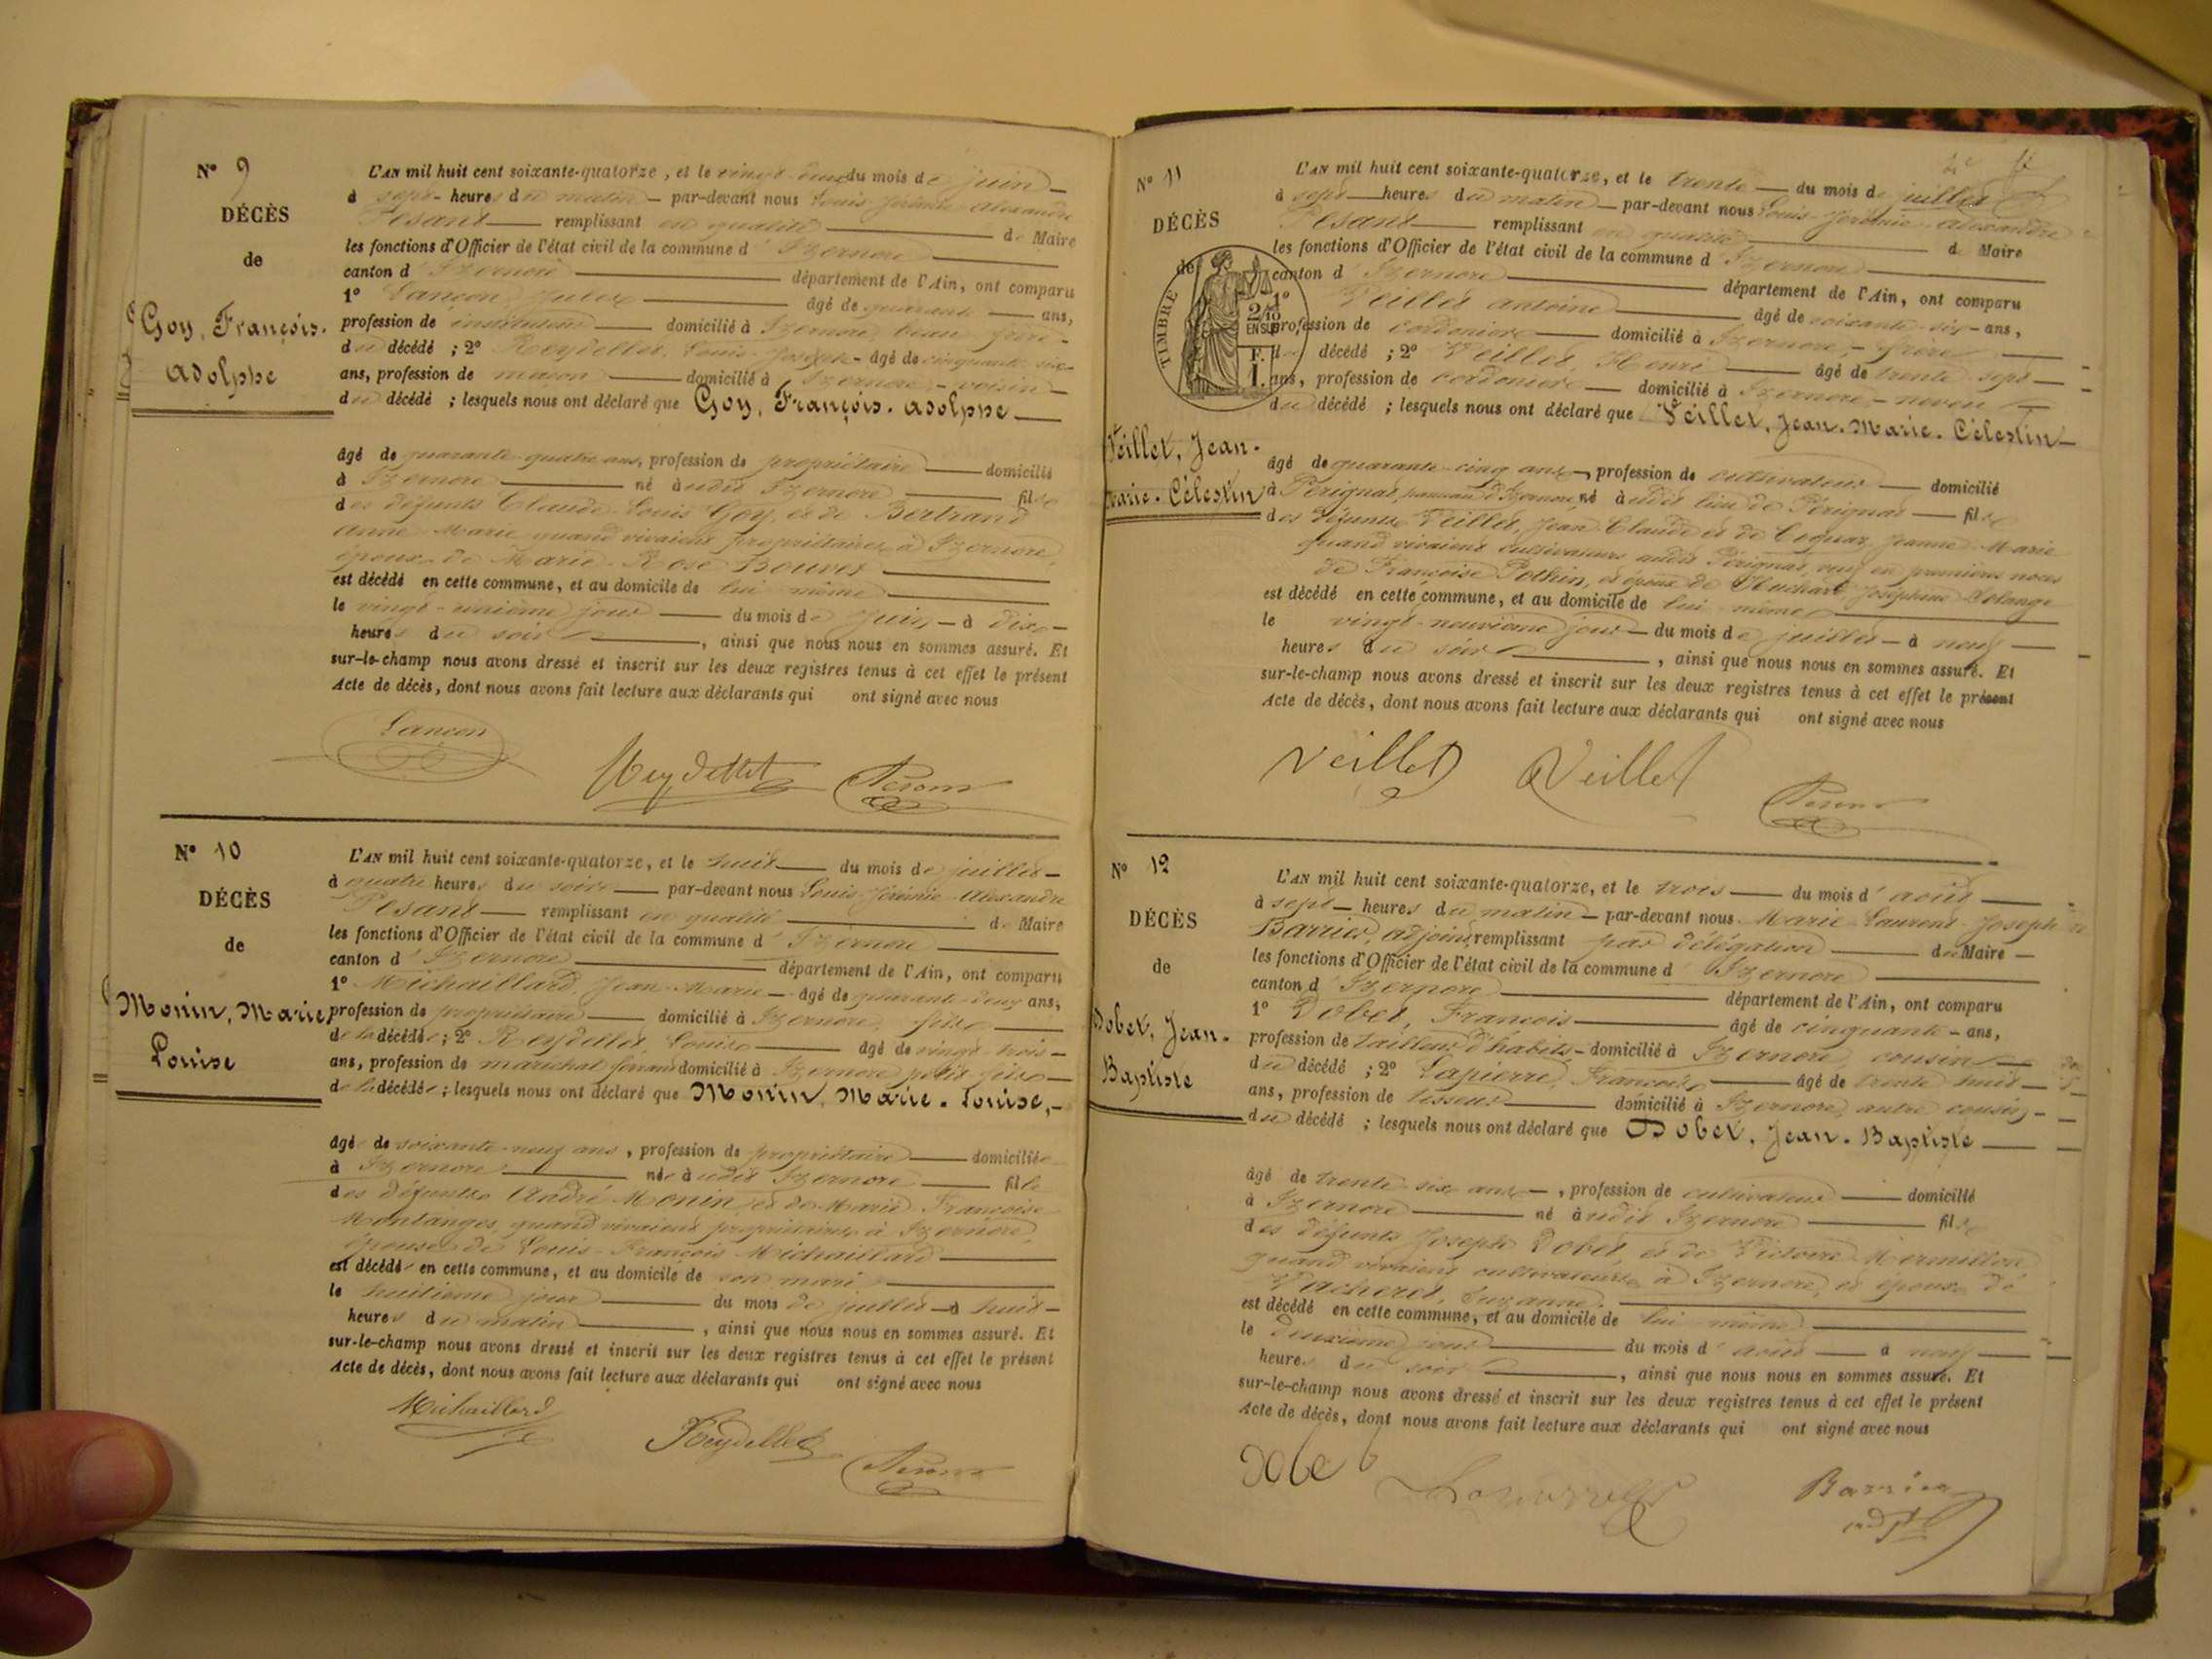 N° 9
DÉCÈS
de
Goy, François.
Adolphe
L'AN mil huit cent soixante-quatorze, et le vingt-deux du mois de juin
à sept heures du matin par-devant nous Louis Jérémie Alexandre
Pesant remplissant en qualité de Maire
les fonctions d'Officier de l'état civil de la commune d'Izernore
canton d'Izernore département de l'Ain, ont comparu
1° Lançon Jules âgé de quarante ans,
profession de instituteur domicilié à Izernore, beau frère
du décédé ; 2° Reydellet, Louis Joseph âgé de cinquante six
ans, profession de maçon domicilié à Izernore, voisin
du décédé ; lesquels nous ont déclaré que Goy, François. Adolphe
âgé de quarante-quatre ans, profession de propriétaire domicilié
à Izernore né audit Izernore fils
des défunts Claude Louis Goy, et de Bertrand
Anne Marie quand vivaient propriétaires à Izernore,
époux de Marie Rose Bouvet
est décédé en cette commune, et au domicile de lui même
le vingt-unième jour du mois de juin à dix
heures du soir, ainsi que nous nous en sommes assuré. Et
sur-le-champ nous avons dressé et inscrit sur les deux registres tenus à cet effet le présent
Acte de décès, dont nous avons fait lecture aux déclarants qui ont signé avec nous
Lançon
Reydellet
N° 10
DÉCÈS
de
Monin, Marie
Louise
L'AN mil huit cent soixante-quatorze, et le huit du mois de juillet
à quatre heures du soir par-devant nous Louis Jérémie Alexandre
Pesant remplissant en qualité de Maire
les fonctions d'Officier de l'état civil de la commune d'Izernore
canton d'Izernore département de l'Ain, ont comparu
1° Michaillard, Jean Marie âgé de quarante deux ans,
profession de propriétaire domicilié à Izernore, fils
de la décédée ; 2° Reydellet, Louis âgé de vingt trois
ans, profession de maréchal ferrand domicilié à Izernore petit fils
de la décédée ; lesquels nous ont déclaré que Monin, Marie. Louise,
âgé de soixante-neuf ans, profession de propriétaire domiciliée
à Izernore née audit Izernore fille
des défunts André Monin, et de Marie Françoise
Montanges, quand vivaient propriétaires à Izernore,
épouse de Louis François Michaillard
est décédée en cette commune, et au domicile de son mari
le huitième jour du mois de juillet à huit
heures du matin, ainsi que nous nous en sommes assuré. Et
sur-le-champ nous avons dressé et inscrit sur les deux registres tenus à cet effet le présent
Acte de décès, dont nous avons fait lecture aux déclarants qui ont signé avec nous
Michaillard
Reydellet
N° 11
DÉCÈS
de
TIMBRE
2/10
EN SUS
F.
1.
Veillet, Jean.
Marie. Célestin
L'AN mil huit cent soixante-quatorze, et le trente du mois de juillet
à sept heures du matin par-devant nous Louis Jérémie Alexandre
Pesant remplissant en qualité de Maire
les fonctions d'Officier de l'état civil de la commune d'Izernore
canton d'Izernore département de l'Ain, ont comparu
1° Veillet Antoine âgé de soixante-six ans,
profession de cordonier domicilié à Izernore, frère
du décédé ; 2° Veillet, Henri âgé de trente sept
ans, profession de cordonier domicilié à Izernore, neveu
du décédé ; lesquels nous ont déclaré que Veillet, Jean. Marie. Célestin
âgé de quarante-cinq ans, profession de cultivateur domicilié
à Pérignat, hameau d'Izernore, né audit lieu de Pérignat fils
des défunts Veillet, Jean Claude et de Jeanne Marie
quand vivaient cultivateurs audit Pérignat, veuf en premières noces
de Françoise Pothin, et époux de Huchard Joséphine Solange
est décédé en cette commune, et au domicile de lui même
le vingt-neuvième jour du mois de juillet à neuf
heures du soir, ainsi que nous nous en sommes assuré. Et
sur-le-champ nous avons dressé et inscrit sur les deux registres tenus à cet effet le présent
Acte de décès, dont nous avons fait lecture aux déclarants qui ont signé avec nous
Veillet Veillet
N° 12
DÉCÈS
de
Dobet, Jean.
Baptiste
L'AN mil huit cent soixante-quatorze, et le trois du mois d'août
à sept heures du matin par-devant nous Marie Laurent Joseph
Barrier, adjoint, remplissant par délégation du Maire
les fonctions d'Officier de l'état civil de la commune d'Izernore
canton d'Izernore département de l'Ain, ont comparu
1° Dobet, François âgé de cinquante ans,
profession de tailleur d'habits domicilié à Izernore cousin
du décédé ; 2° Lapierre, François âgé de trente huit
ans, profession de tisseur domicilié à Izernore, autre cousin
du décédé ; lesquels nous ont déclaré que Dobet, Jean. Baptiste
âgé de trente six ans, profession de cultivateur domicilié
à Izernore né audit Izernore fils
des défunts Joseph Dobet, et de Victoire Mermillon
quand vivaient cultivateurs à Izernore, et époux de
Vucheret, Suzanne.
est décédé en cette commune, et au domicile de lui même
le deuxième jour du mois d'août à neuf
heures du soir, ainsi que nous nous en sommes assuré. Et
sur-le-champ nous avons dressé et inscrit sur les deux registres tenus à cet effet le présent
Acte de décès, dont nous avons fait lecture aux déclarants qui ont signé avec nous
Barrier